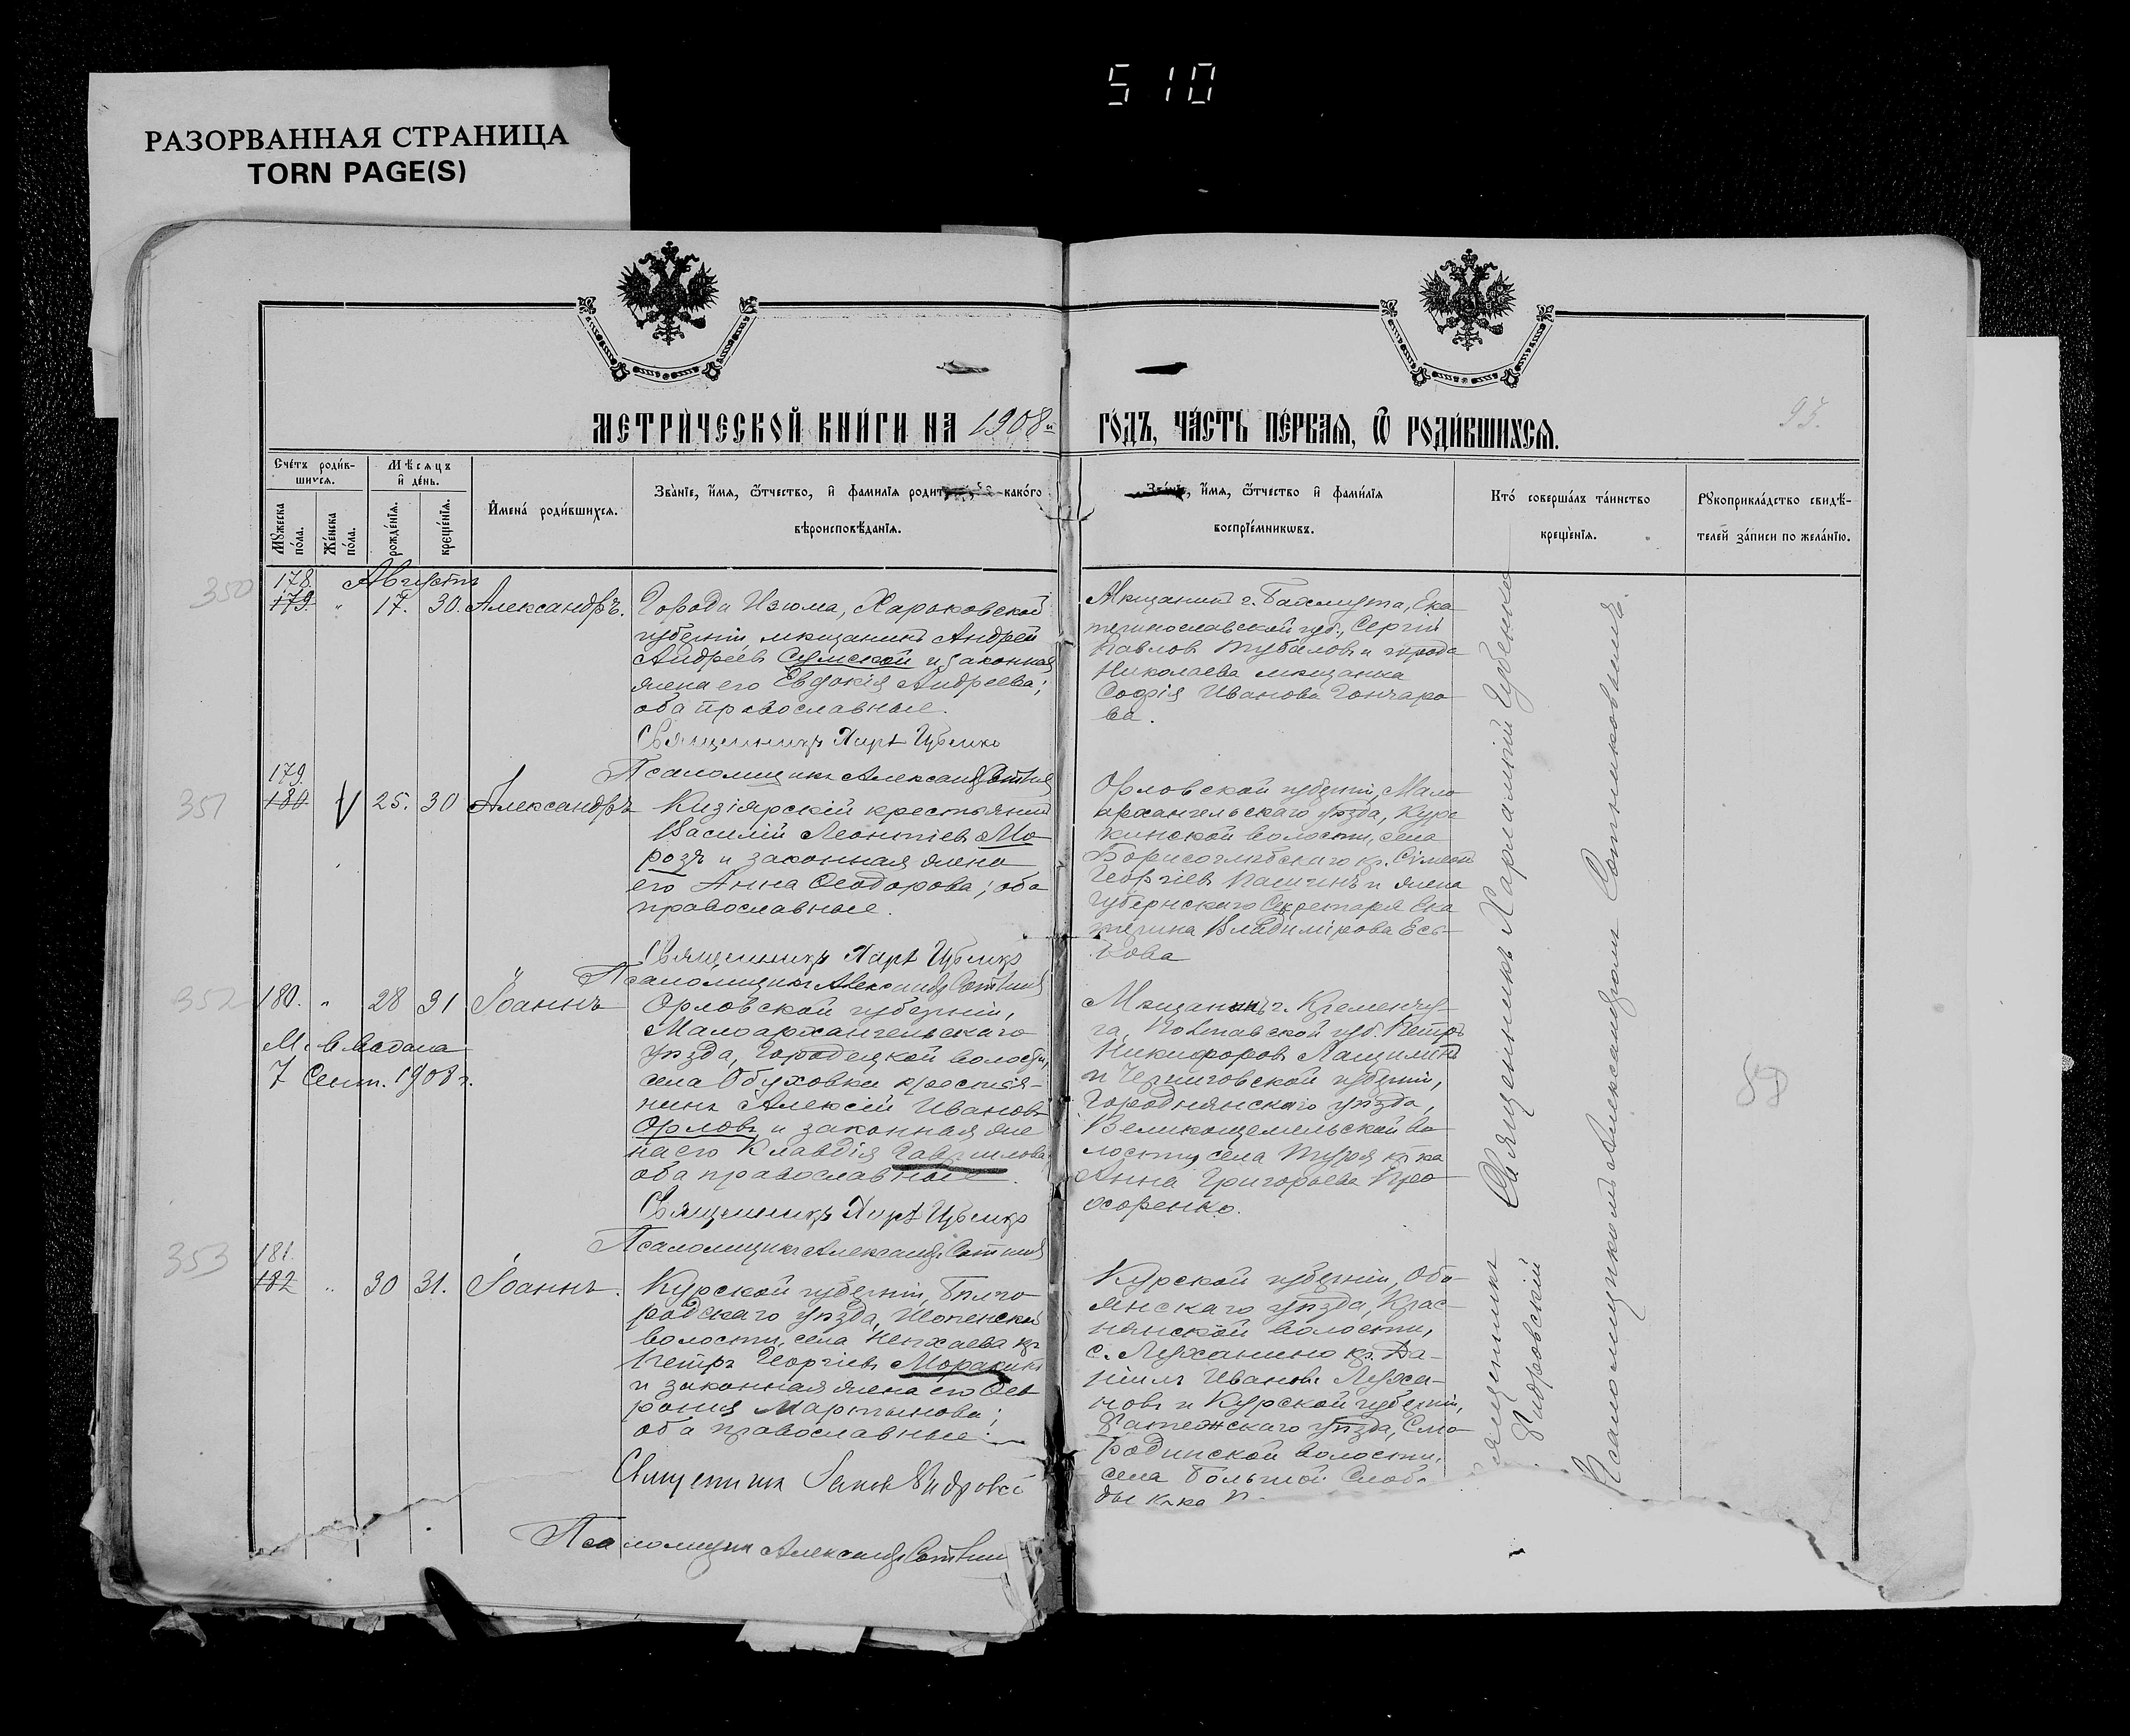 510
РАЗОРВАННАЯ СТРАНИЦА
TORN PAGE(S)
МЕТРИ́ЧЕСКОЙ КНИ́ГИ НА 1908й
ГОДЪ, ЧА́СТЬ ПЕ́РВАЯ, Ѿ РОДИ́ВШИХСЯ.
95.
Сче́тъ роди́в-
шихся.
Мꙋ́жеска по́ла.
Же́нска по́ла.
Мѣсяцъ и де́нь.
рожде́нїя.
креще́нїя.
Имена́ роди́вшихся.
Зва́нїе, и́мя, ѻ҆́тчество, и҆ фами́лїя како́го
вѣроисповѣ́данїя.
и́мя, ѻ҆́тчество и҆ фами́лїя
воспрїе́мникѡвъ.
Кто́ соверша́лъ та́инство
креще́нїя.
Рꙋкоприкла́дство свидѣ́-
телей за́писи по жела́нїю.
350
178.
179.
"
Августъ
17.
30.
Александръ.
Города Изюма, Харьковской
губерніи, мѣщанинъ Андрей
Андреевъ Сумской и законная
жена его Евдокія Андреева;
оба православные.
Священникъ Харл Губенко
Псаломщикъ Александръ
Мѣщанинъ г. Бахмута, Ека
теринославской губ., Сергій
Павловъ и города
Николаева мѣщанка
Софія Иванова Гончаро
ва.
351
179.
180
V
25.
30
Александръ
Кизіярскій крестьянинъ
Василій Леонтіевъ Мо
розъ и законная жена
его Анна Ѳеодорова; оба
православные.
Священникъ Харл Губенко
Псаломщикъ Александръ
Орловской губерніи, Мало
архангельскаго уѣзда,
волости, села
Борисоглѣбскаго кр. Сѵмеонъ
Георгіевъ и жена
Губернскаго Секретаря Ека
терина Владимірова Есь-
кова
352
180.
"
28
31
Іоаннъ
М. в. выдана
7 Сент. 1908 г.
Орловской губерніи,
Малоархангельскаго
уѣзда, Городецкой волости,
села Обуховки крестья-
нинъ Алексій Ивановъ
Орловъ и законная же
на его Клавдія Гаврилова
оба православные.
Священникъ Харл Губенко
Псаломщикъ Александръ
Мѣщанинъ г. Кременчу-
га, Полтавской губ. Петръ
Никифоровъ
и Черниговской губерніи,
Городнянскаго уѣзда,
во
лости, села кр ка
Анна Григорьева Про
хоренко.
353
181
182
"
30
31.
Іоаннъ.
Курской губерніи, Бѣлго
родскаго уѣзда, Шопенской
волости, села Непхаева кр
Петръ Георгіевъ Моракинъ
и законная жена его Фев
ронія Мартынова;
оба православные.
Священникъ
Псаломщикъ Александръ
Курской губерніи, Обо-
янскаго уѣзда, Крас-
нянской волости,
с. Луханино кр. Да-
ніилъ Ивановъ Луха-
новъ и Курской губерніи,
Фатежскаго уѣзда, Смо
родинской волости,
села Большой Слобо
ды кр ка
Священникъ Харлампій Губенко
Псаломщикомъ Александромъ Сотниковымъ.
58